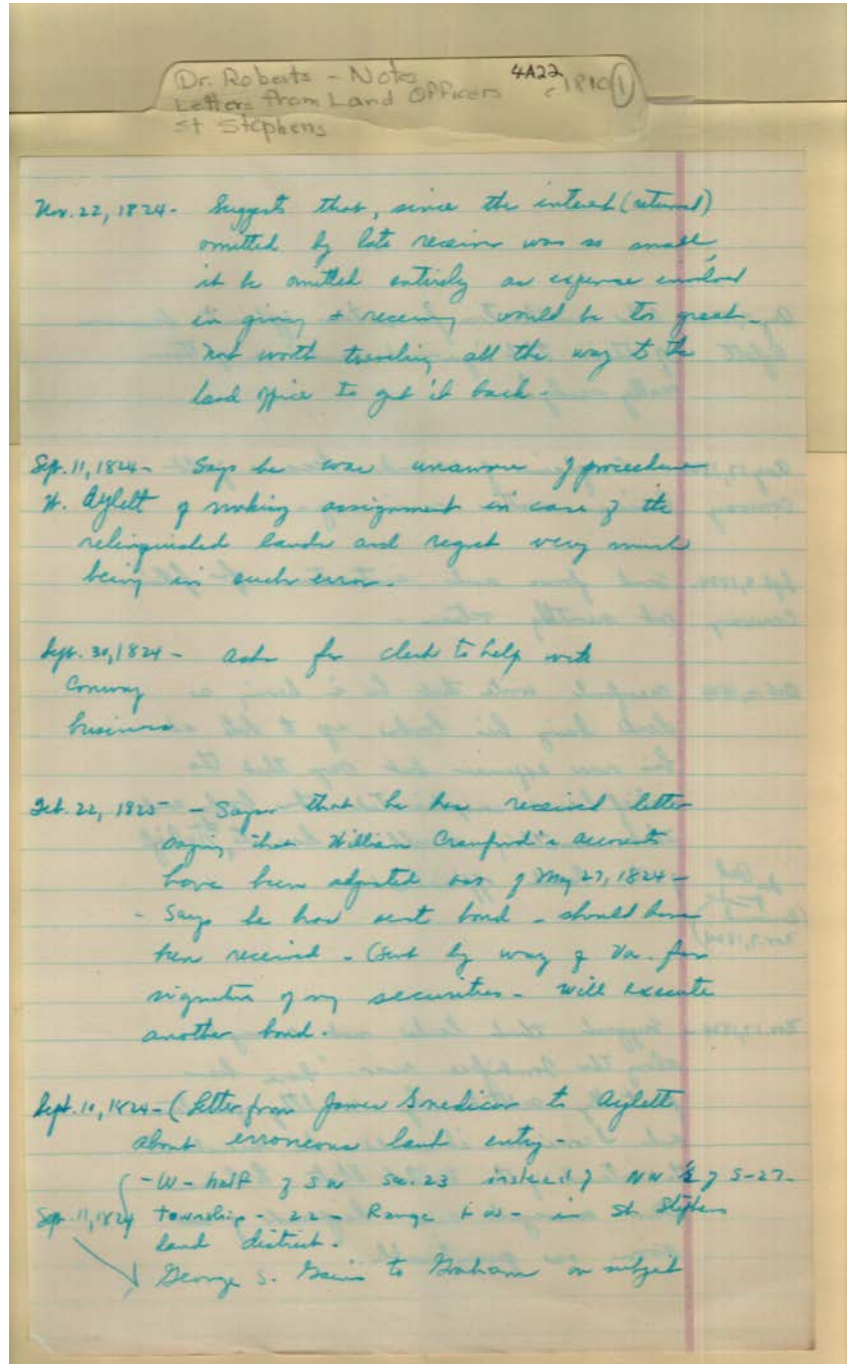 Dr. Roberts - Notes 4A22
Letters from Land Officers c 1810 (1)
St Stephens
Nov. 22, 1824 - Suggests that, since the interest (returned)
omitted by late receiver was so small,
it be omitted entirely as expense involved
in giving + receiving would be too great -
not worth traveling all the way to the
land office to get it back -
Sept. 11, 1824 - Says he was unaware of procedure
W. Aylett of making assignment in case of the
relinquished lands and regret very much
being in such error.
Sept. 30, 1824 - asks for clerk to help with
Conway
business
Feb. 22, 1825 - Says that he has received letter
saying that William Crawford's accounts
have been adjusted as of May 27, 1824 -
- Says he has sent bond - should have
been received - (Sent by way of Va. for
signature of my securities - will execute
another bond.
Sept. 10, 1824 - (letter from James Snedicor to Aylett
about erroneous land entry -
- W - half of SW Sec. 23 instead of NW of S-27 -
Sept. 11, 1824 township - 22 - Range W - in St. Stephens
land district.
George S. Gaines to Graham on subject